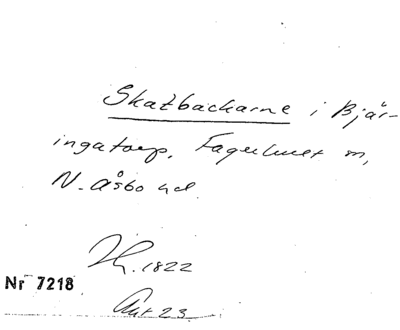 Skatbackarne i Bjär-
ingatorp, Fagerhult m,
N. Åsbo hd
1822
Nr 7218
23